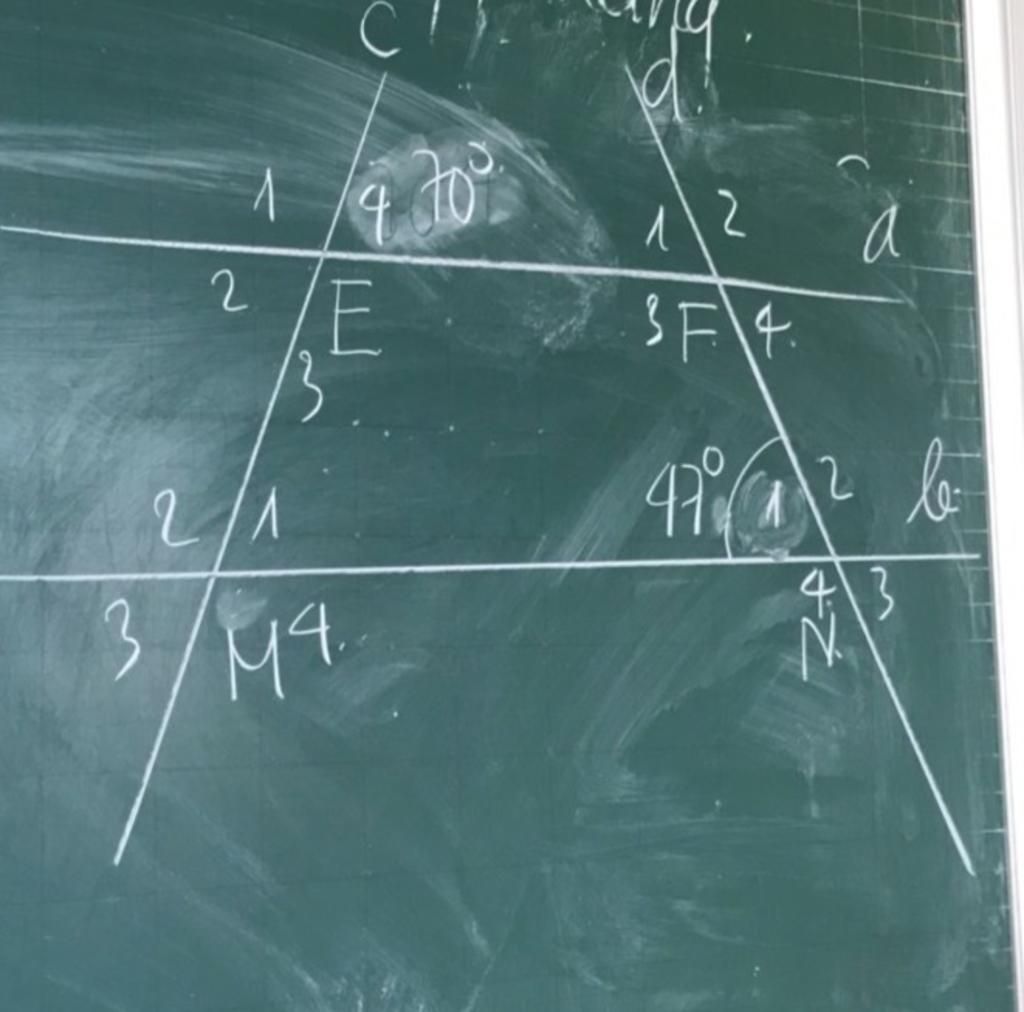 c
d
1 4 70° 1 2 a
2 E 3 F 4
3
2 1 47° 1 2 b
3 M 4 4 3
N